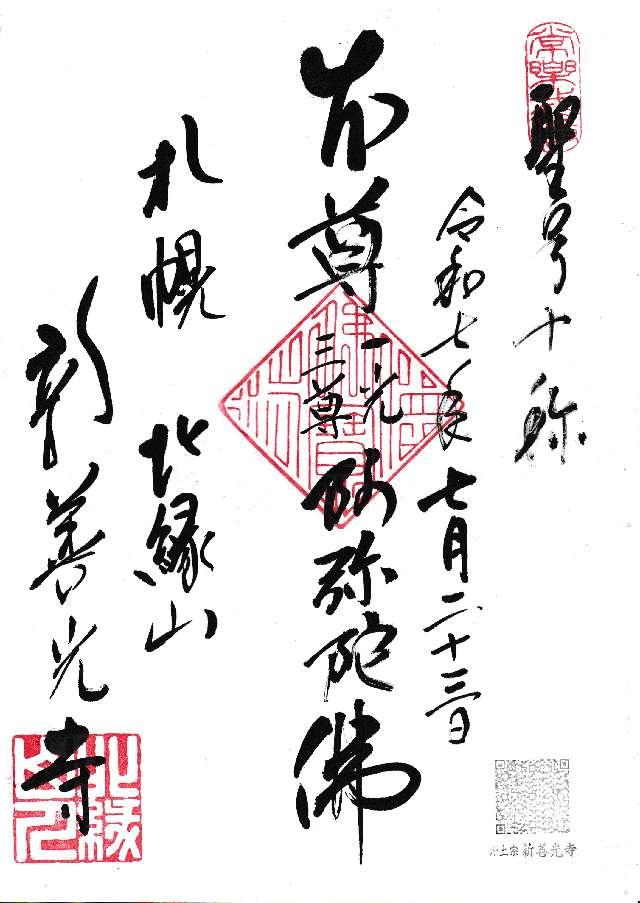 聖号十称
令和七年七月二十三日
本尊 一光三尊 阿弥陀佛
札幌 北縁山
新善光寺
浄土宗 新善光寺